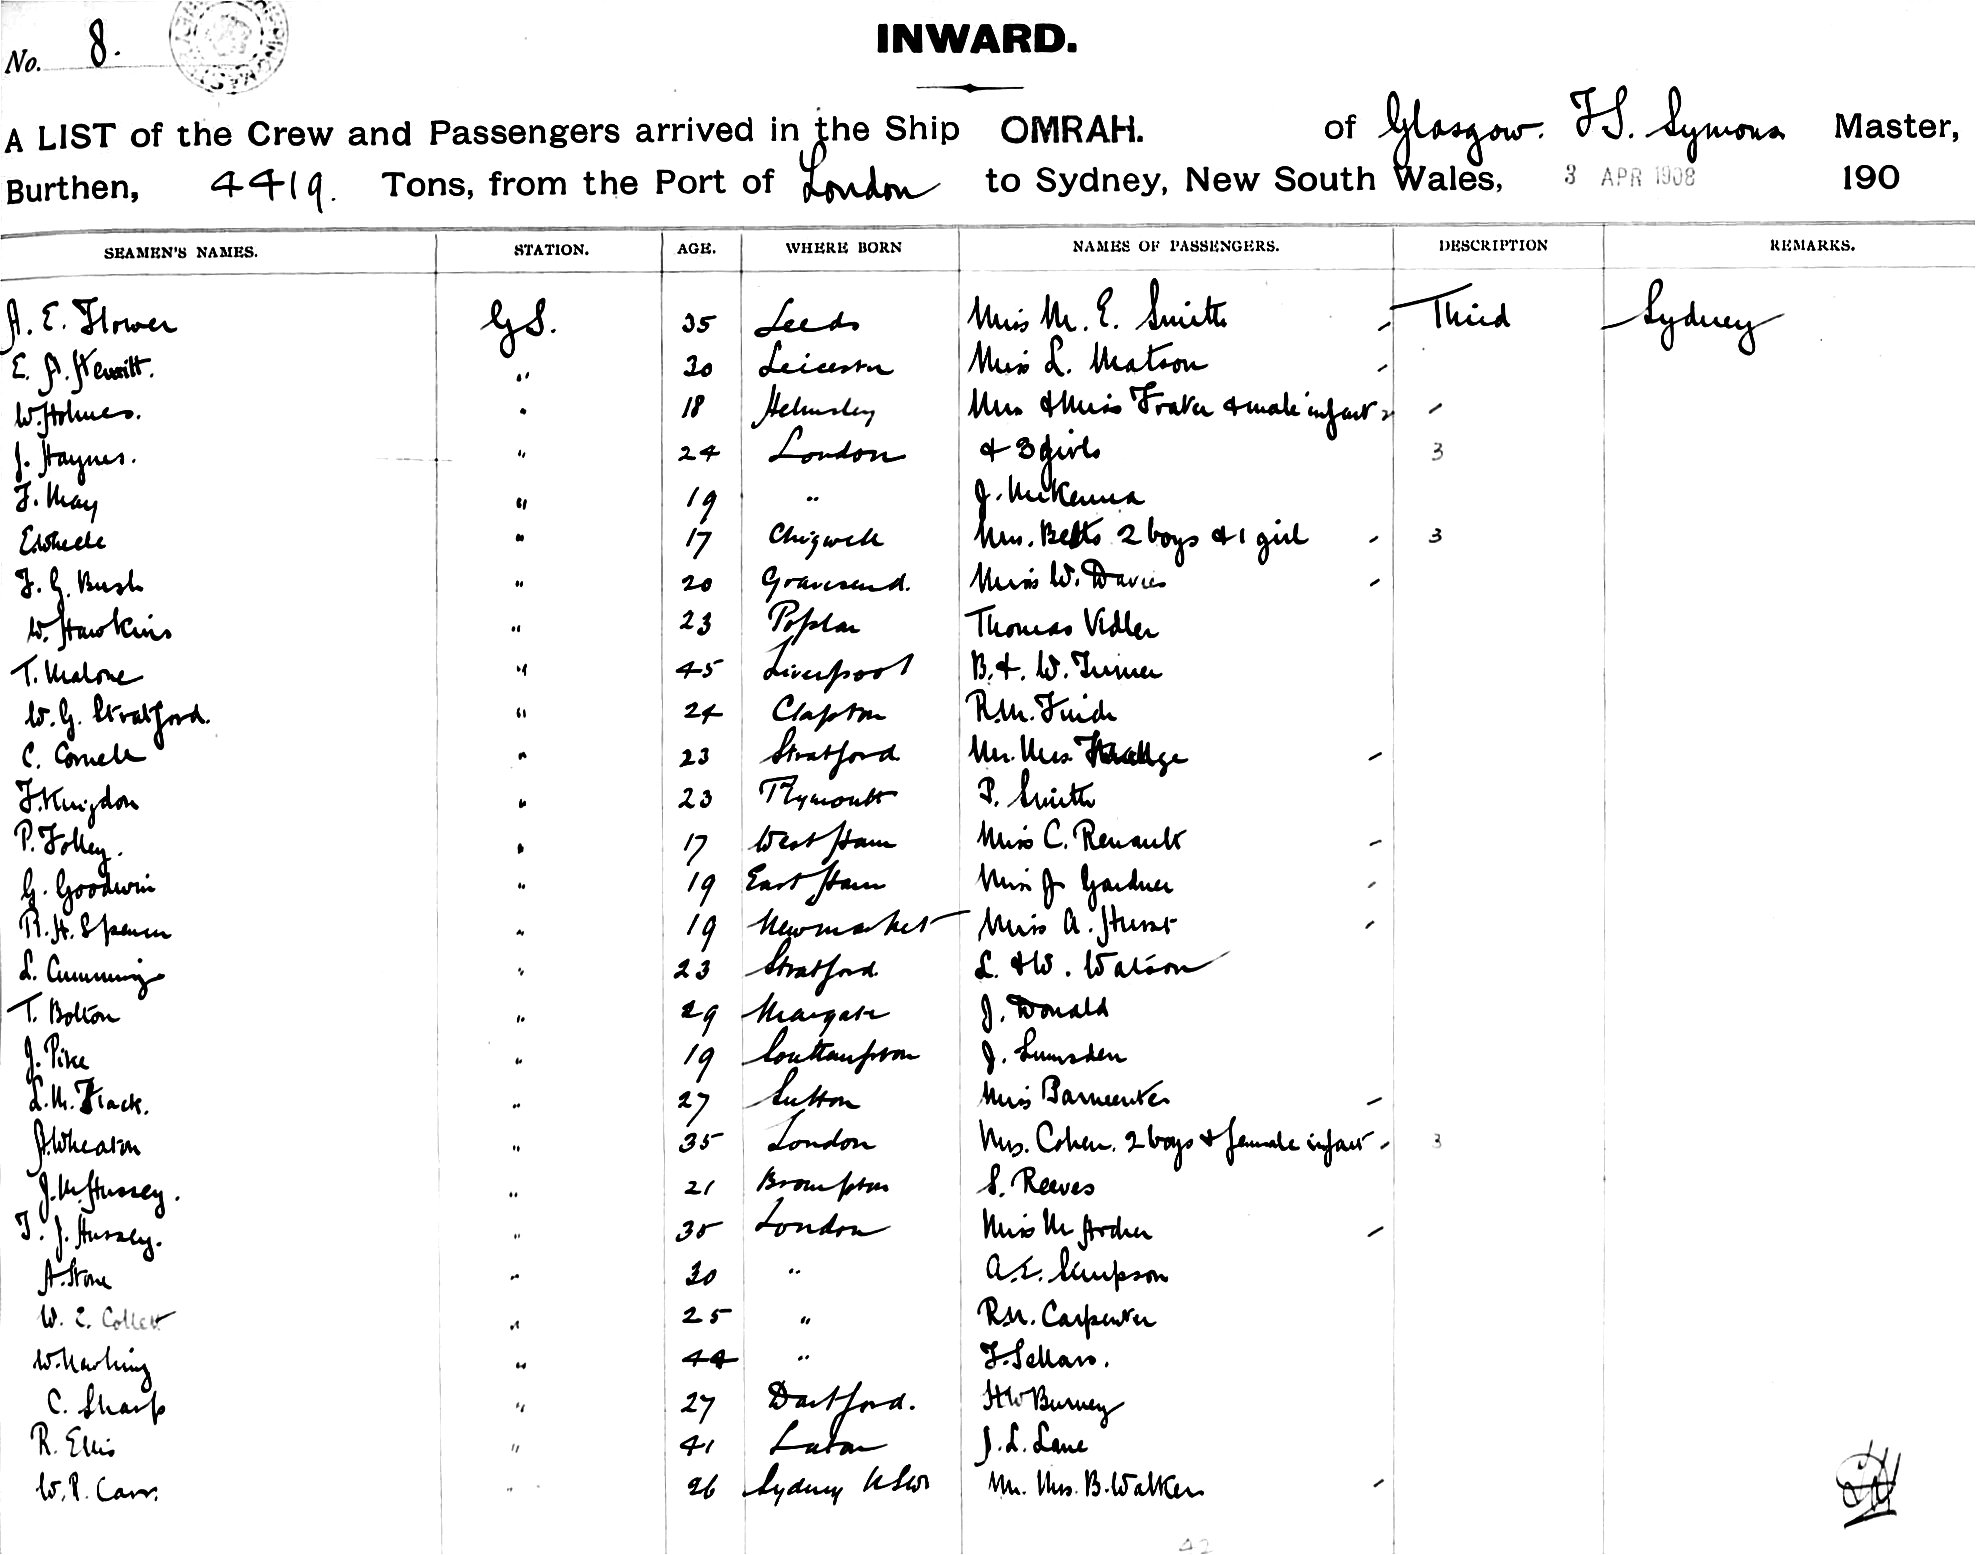 No. 8.
INWARD.
A LIST of the Crew and Passengers arrived in the Ship OMRAH. of Glasgow. F S. Symons Master,
Burthen, 4419. Tons, from the Port of London to Sydney, New South Wales, 3 APR 1908 190
SEAMEN'S NAMES. STATION. AGE. WHERE BORN NAMES OF PASSENGERS. DESCRIPTION REMARKS.
A. E. Flower G.S. 35 Leeds Miss M. E. Smith Third Sydney
E. A. Hewitt. " 30 Leicester Miss L. Matson
W. Holmes. " 18 Helmsley Mrs & Miss Frater & male infant
J. Haynes. " 24 London & 3 girls 3
F. May " 19 " J. McKenna
E. Wheele " 17 Chigwell Mrs. Betts 2 boys & 1 girl 3
F. G. Bush " 20 Gravesend. Miss W. Davies
W. Hawkins " 23 Poplar Thomas Vidler
T. Malone " 45 Liverpool B. & W. Turner
W. G. Stratford. " 24 Clapton R.M. Finch
C. Cornell " 23 Stratford Mr. Mrs.
F. Kingdon " 23 Plymouth P. Smith
P. Folley. " 17 West Ham Miss C. Renault
G. Goodwin " 19 East Ham Miss J Gardner
R. H. Spencer " 19 Newmarket Miss A. Hurst
L. Cummings " 23 Stratford L. & W. Watson
T. Bolton " 29 Margate J. Donald
J. Pike " 19 Southampton J. Lumsden
L. M. Flack. " 27 Sutton Miss
A. Wheaton " 35 London Mrs. Cohen. 2 boys & female infant 3
J. M. Hussey. " 21 Brompton S. Reeves
T. J. Hussey. " 35 London Miss M Archer
A. Stone " 30 " A. E. Simpson
W. E. Collett " 25 " R.M. Carpenter
W. " 44 " F. Sellars.
C. Sharp " 27 Dartford. H W Burney
R. Ellis " 41 Luton J. L. Lane
W. P. Carr. " 26 Sydney NSW Mr. Mrs. B. Walker
42